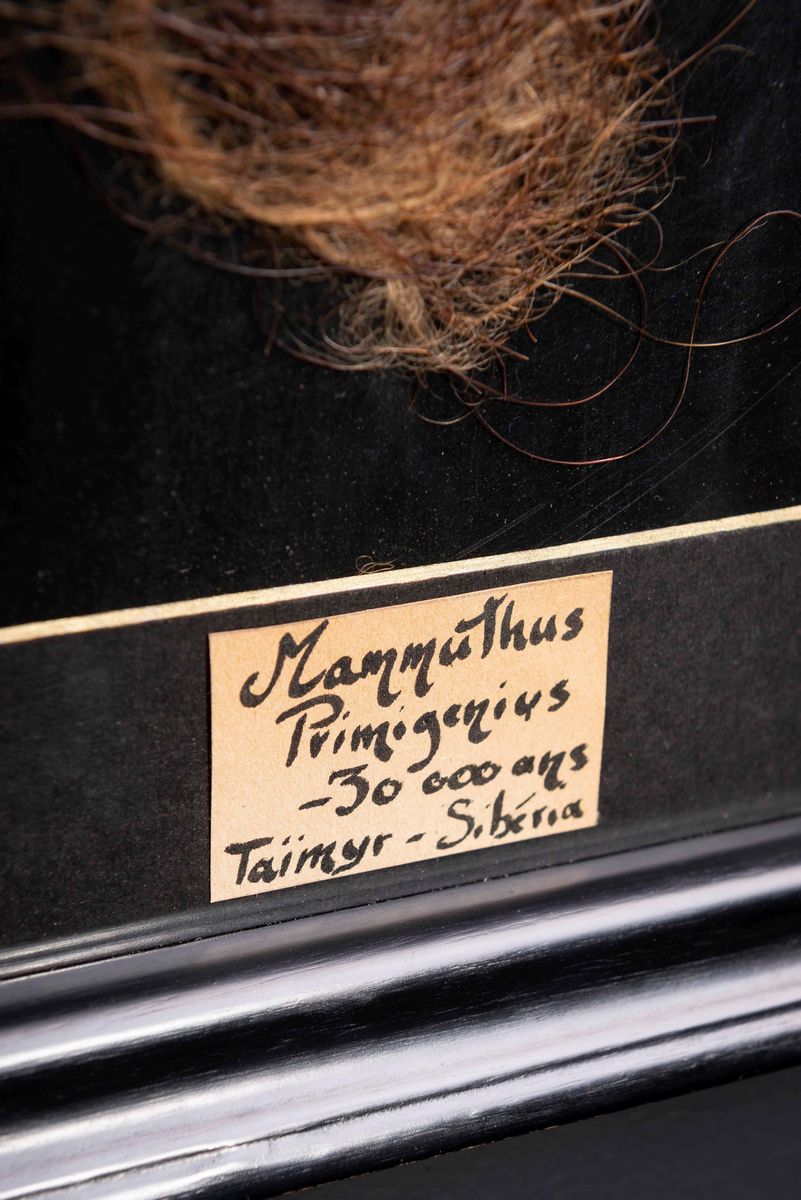 Mammuthus
Primigenius
-30 000 ans
Taïmyr - Sibéria